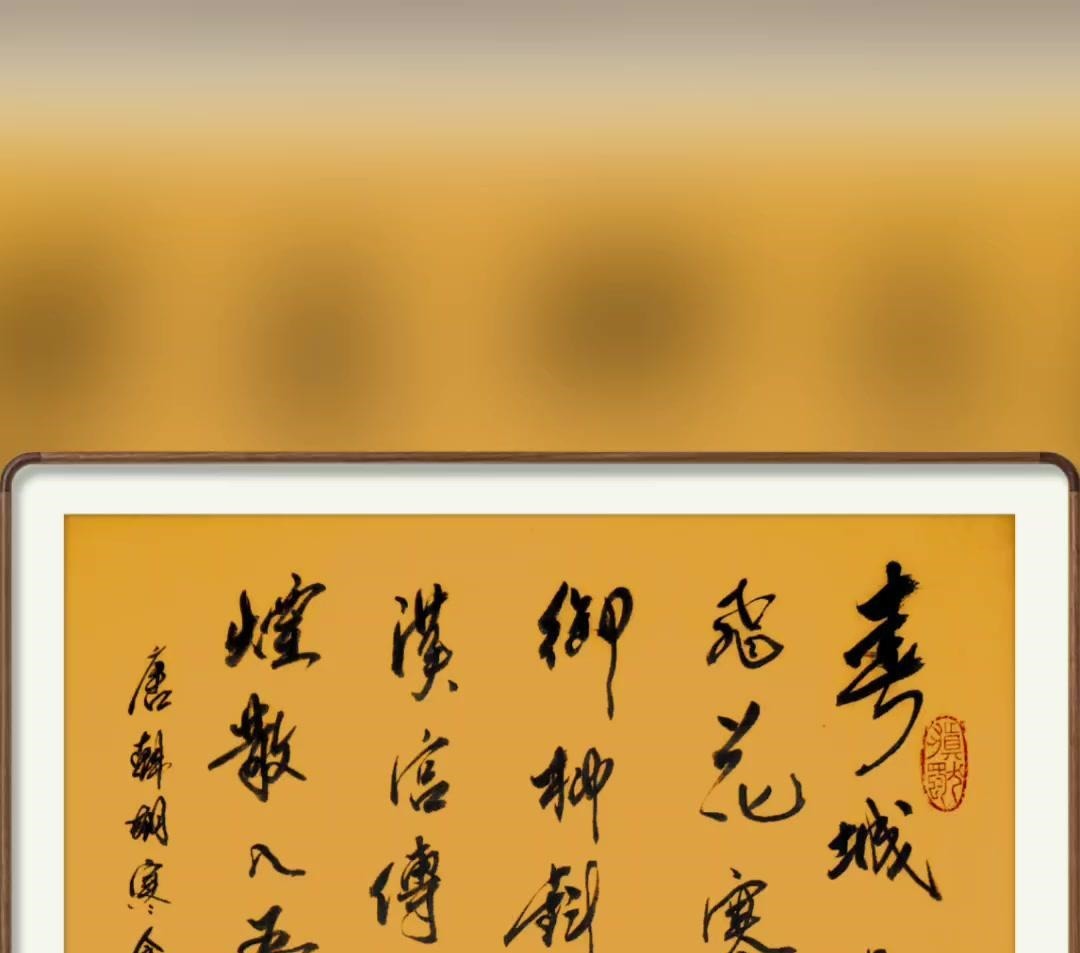 春城
飛花寒
御柳斜
漢宮傳
煙散入五
唐韓翃寒食